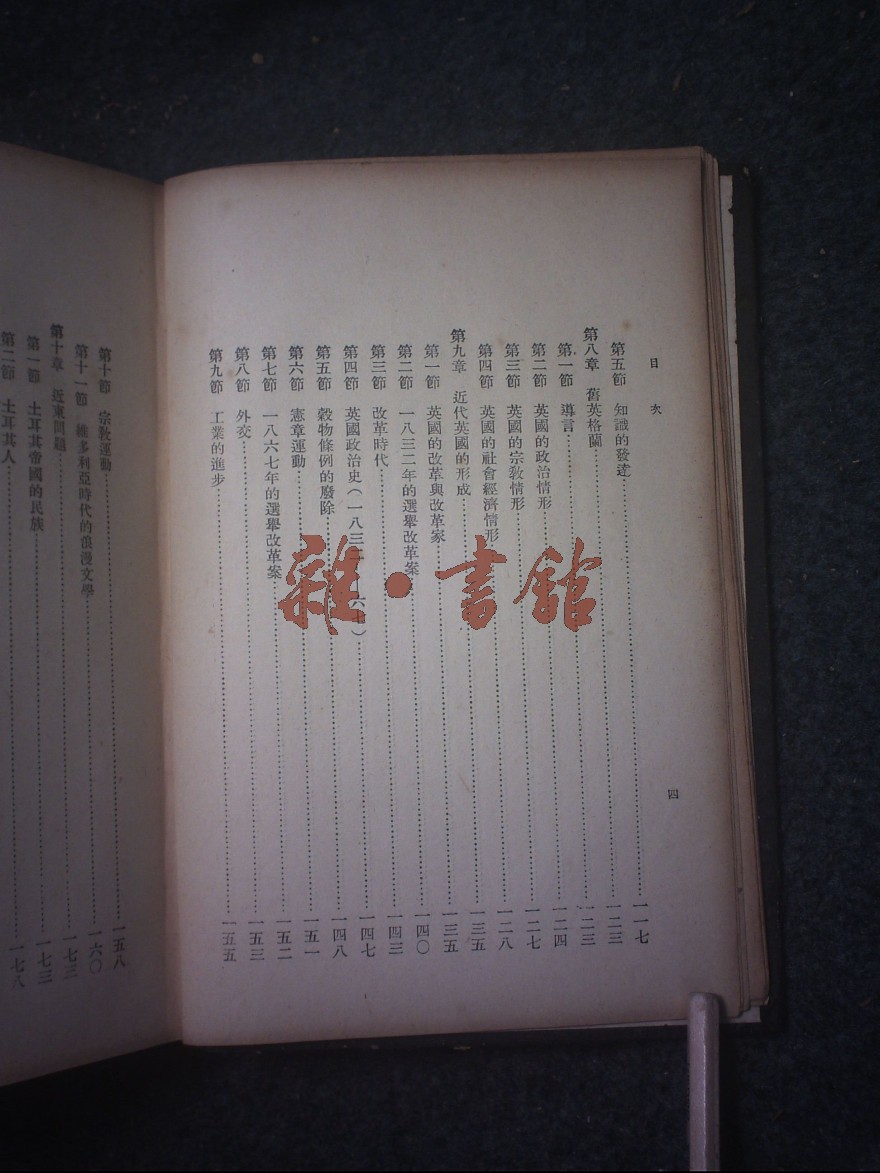 目次
四
第五節 知識的發達……一一七
第八章 舊英格蘭……一二三
第一節 導言……一二三
第二節 英國的政治情形……一二四
第三節 英國的宗教情形……一二七
第四節 英國的社會經濟情形……一二八
第九章 近代英國的形成……一三五
第一節 英國的改革與改革家……一三五
第二節 一八三二年的選舉改革案……一四〇
第三節 改革時代……一四三
第四節 英國政治史(一八三二 六七)……一四七
第五節 穀物條例的廢除……一四八
第六節 憲章運動……一五一
第七節 一八六七年的選舉改革案……一五二
第八節 外交……一五三
第九節 工業的進步……一五五
第十節 宗教運動……一五八
第十一節 維多利亞時代的浪漫文學……一六〇
第十章 近東問題……一七三
第一節 土耳其帝國的民族……一七三
第二節 土耳其人……一七八
雜·書館